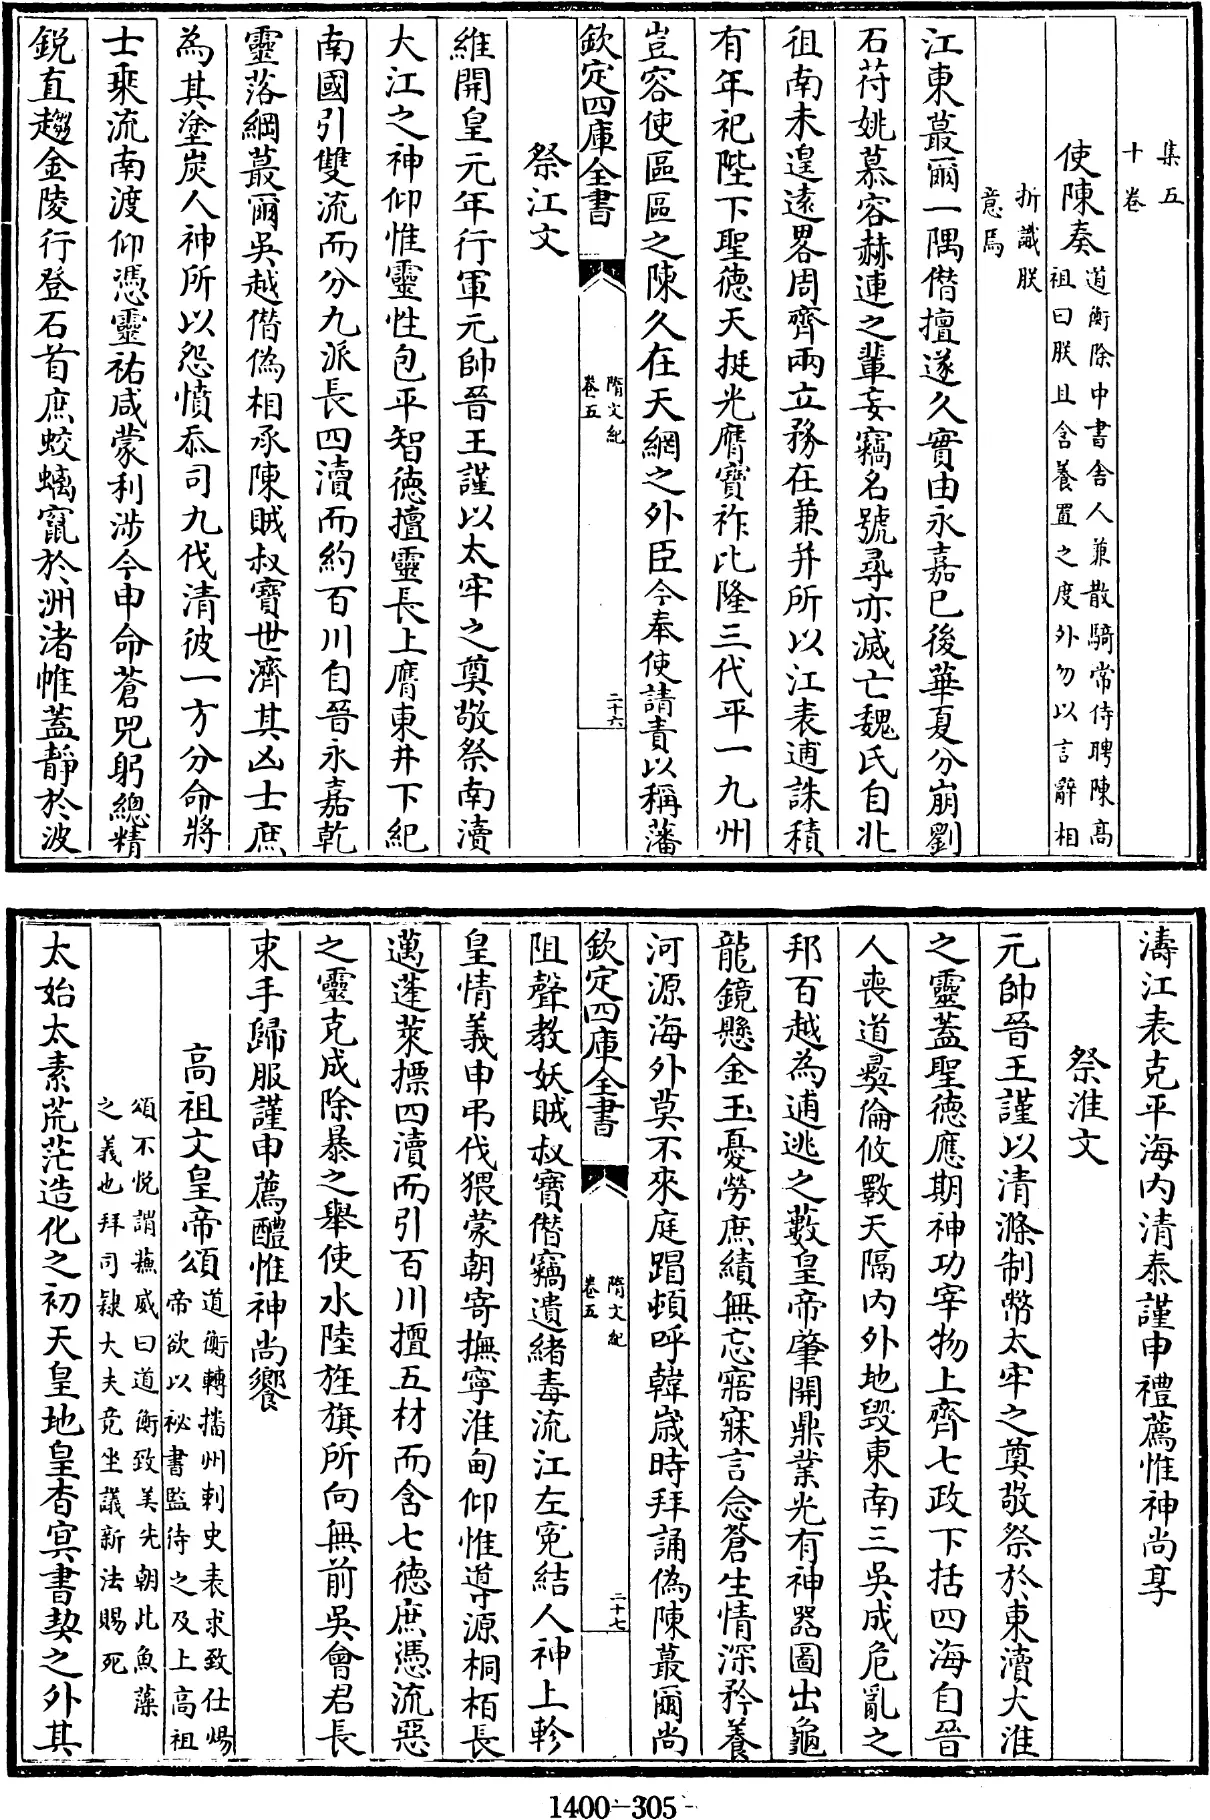 集五
十卷
使陳奏
道衡除中書舍人兼散騎常侍聘陳高
祖曰朕且含養置之度外勿以言辭相
折識朕
意焉
江東蕞爾一隅僭擅遂久實由永嘉已後華夏分崩劉
石苻姚慕容赫連之輩妄竊名號尋亦滅亡魏氏自北
徂南未遑遠畧周齊兩立務在兼并所以江表逋誅積
有年祀陛下聖德天挺光膺寶祚比隆三代平一九州
豈容使區區之陳久在天網之外臣今奉使請責以稱藩
欽定四庫全書
隋文紀
卷五
二十六
祭江文
維開皇元年行軍元帥晉王謹以太牢之奠敬祭南瀆
大江之神仰惟靈性包平智徳擅靈長上膺東井下紀
南國引雙流而分九派長四瀆而約百川自晉永嘉乾
靈落綱蕞爾吳越僭偽相承陳賊叔寶世濟其凶士庶
為其塗炭人神所以怨憤忝司九伐清彼一方分命將
士乘流南渡仰憑靈祐咸蒙利涉今申命蒼兕躬總精
鋭直趨金陵行登石首庶蛟螭竄於洲渚帷蓋靜於波
濤江表克平海内清泰謹申禮薦惟神尚享
祭淮文
元帥晉王謹以清滌制幣太牢之奠敬祭於東瀆大淮
之靈蓋聖徳應期神功宰物上齊七政下括四海自晉
人喪道彛倫攸斁天隔内外地毀東南三吳成危亂之
邦百越為逋逃之藪皇帝肇開鼎業光有神器圖出龜
龍鏡懸金玉憂勞庶績無忘寤寐言念蒼生情深矜養
河源海外莫不來庭蹋頓呼韓歲時拜誦偽陳蕞爾尚
欽定四庫全書
隋文紀
卷五
二十七
阻聲教妖賊叔寶僭竊遺緒毒流江左寃結人神上軫
皇情義申弔伐猥蒙朝寄撫寧淮甸仰惟導源桐栢長
邁蓬萊摽四瀆而引百川擅五材而含七徳庶憑流惡
之靈克成除暴之舉使水陸旌旗所向無前吳會君長
束手歸服謹申薦醴惟神尚饗
高祖文皇帝頌
道衡轉播州刺史表求致仕煬
帝欲以祕書監待之及上高祖
頌不悦謂蘇威曰道衡致美先朝此魚藻
之義也拜司隷大夫竟坐議新法賜死
太始太素荒茫造化之初天皇地皇杳冥書契之外其
1400-305